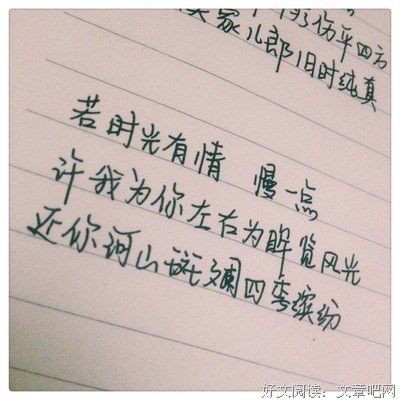 伤平四方
家儿郎旧时纯真
若时光有情 慢一点
许我为你左右为眸览风光
还你河山斑斓四季缤纷
好文阅读：文章吧网